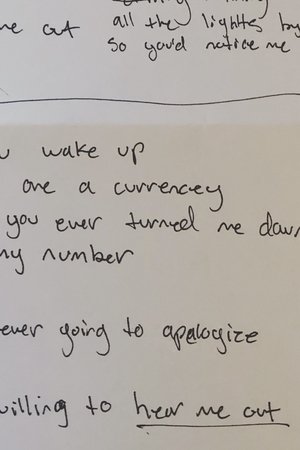 me out
all the lightes by
so you'd notice me
wake up
one a currencey
you ever turned me down
my number
ever going to apalogize
willing to hear me out